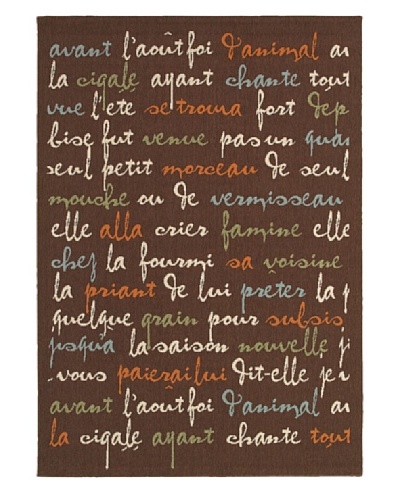 avant l'août foi d'animal au
la cigale ayant chante tout
vue l'été se trouva fort dép
bise fut venue pas un quan
seul petit morceau de seul
mouche ou de vermisseau
elle alla crier famine elle
chez la fourmi sa voisine
la priant de lui prêter la p
quelque grain pour subsis
jusqu'a la saison nouvelle j
vous paierai lui dit-elle je v
avant l'août foi d'animal au
la cigale ayant chante tout